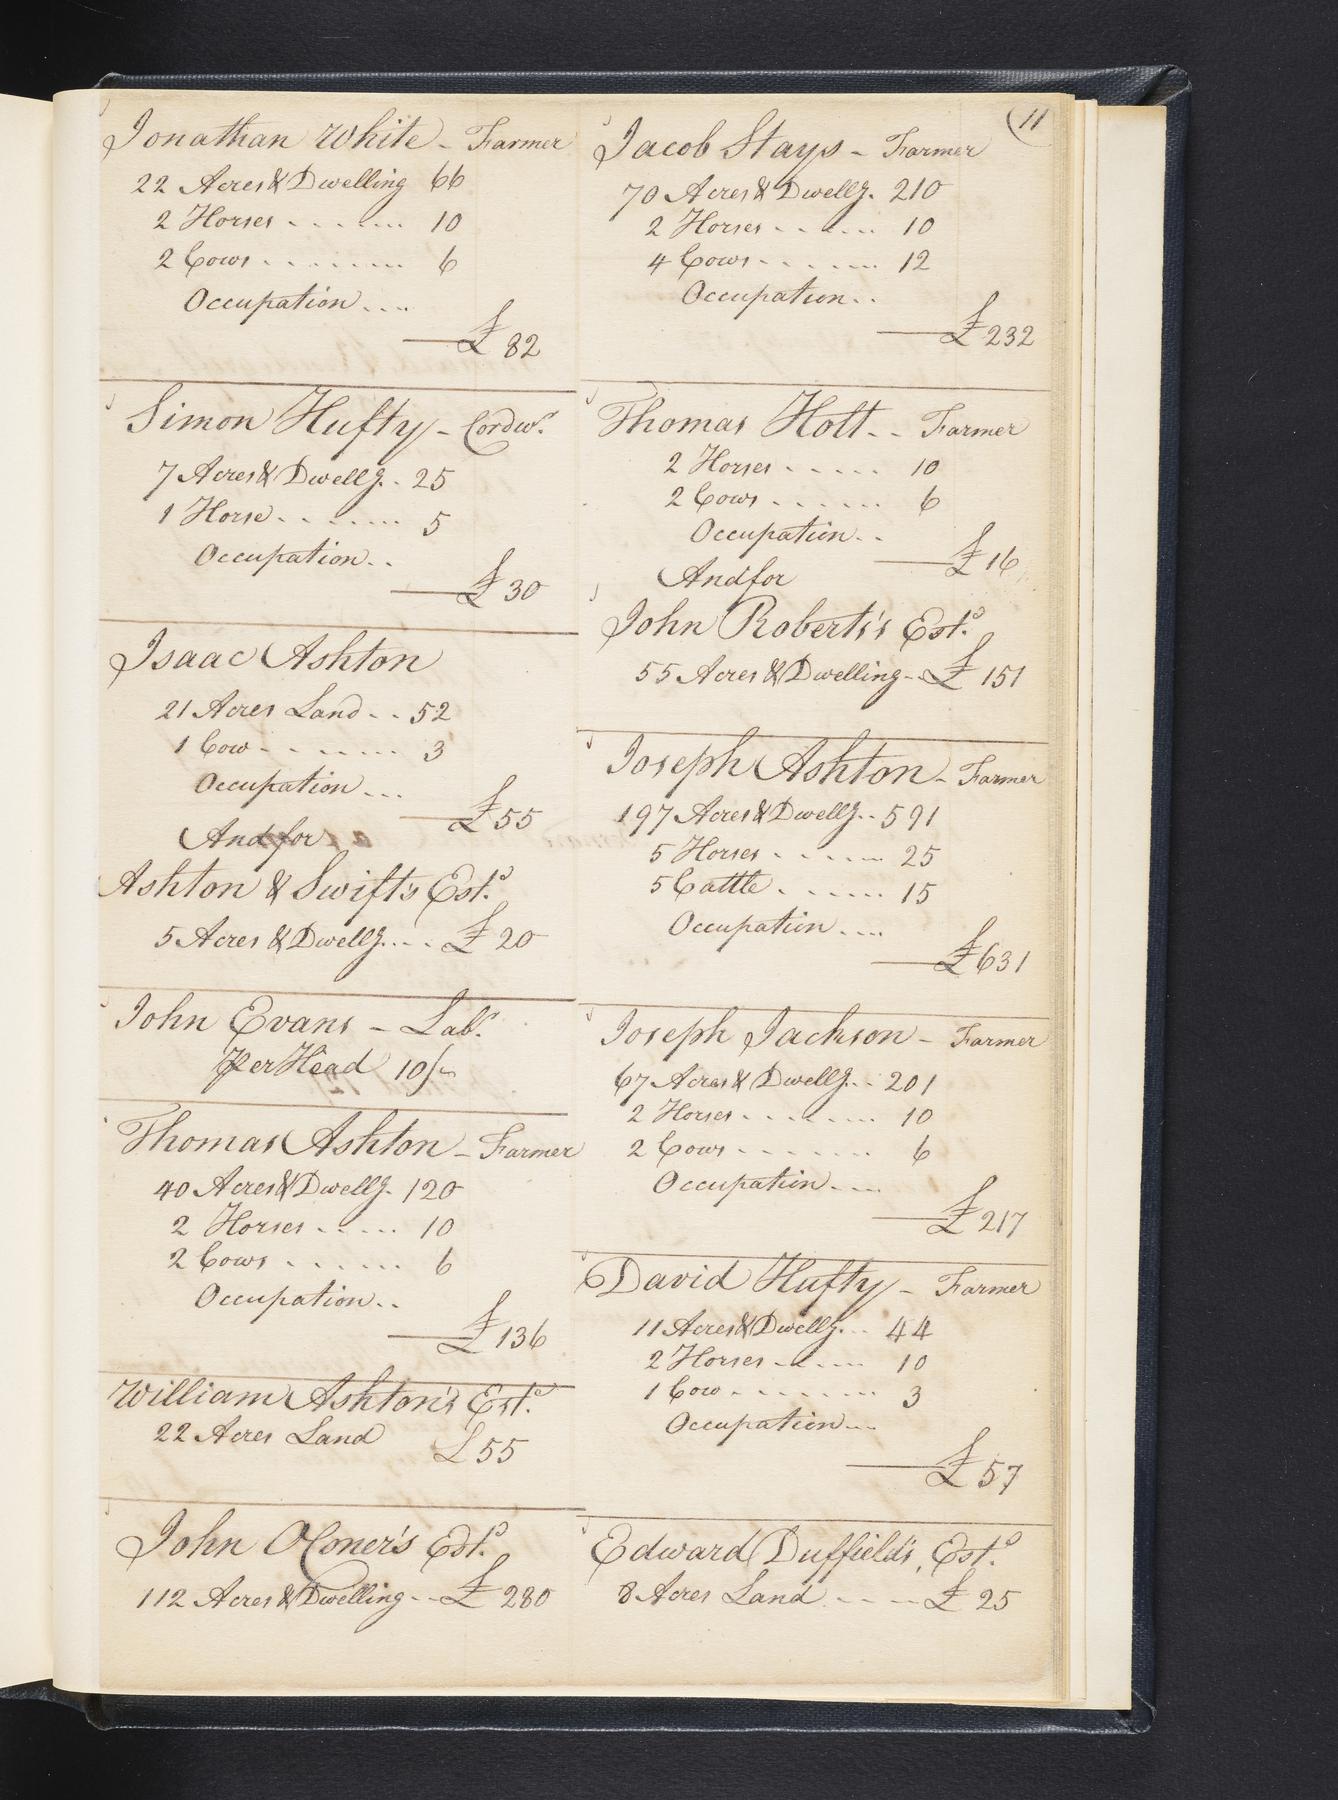 11
Jonathan White - Farmer
22 Acres & Dwelling 66
2 Horses ....... 10
2 Cows ........ 6
Occupation ....
£ 82
Simon Hufty - Cordwr.
7 Acres & Dwellg. . 25
1 Horse ....... 5
Occupation ..
£ 30
Isaac Ashton
21 Acres Land .. 52
1 Cow ....... 3
Occupation ...
£ 55
And for
Ashton & Swift's Este.
5 Acres & Dwellg. ... £ 20
John Evans - Labr.
Per Head 10/-
Thomas Ashton - Farmer
40 Acres & Dwellg. 120
2 Horses ..... 10
2 Cows ...... 6
Occupation ..
£ 136
William Ashton's Este.
22 Acres Land £ 55
John Comer's Este.
112 Acres & Dwelling -- £ 280
Jacob Stays - Farmer
70 Acres & Dwellg. 210
2 Horses ...... 10
4 Cows ...... 12
Occupation ..
£ 232
Thomas Holt -- Farmer
2 Horses ..... 10
2 Cows ...... 6
Occupation ..
£ 16
And for
John Roberts's Este.
55 Acres & Dwelling -- £ 151
Joseph Ashton - Farmer
197 Acres & Dwellg. .. 591
5 Horses ...... 25
5 Cattle ...... 15
Occupation ....
£ 631
Joseph Jackson - Farmer
67 Acres & Dwellg. .. 201
2 Horses ....... 10
2 Cows ....... 6
Occupation ....
£ 217
David Hufty - Farmer
11 Acres & Dwellg. .. 44
2 Horses ...... 10
1 Cow ....... 3
Occupation ...
£ 57
Edward Duffield's, Este.
8 Acres Land ---- £ 25